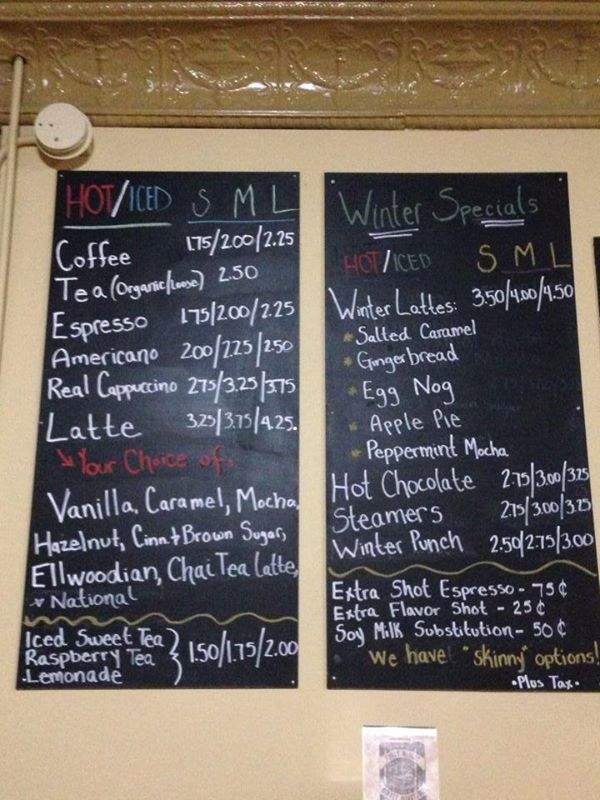 HOT/ICED S M L
Coffee 1.75/2.00/2.25
Tea (Organic/loose) 2.50
Espresso 1.75/2.00/2.25
Americano 2.00/2.25/2.50
Real Cappuccino 2.75/3.25/3.75
Latte 3.25/3.75/4.25.
Your Choice of:
Vanilla, Caramel, Mocha,
Hazelnut, Cinn & Brown Sugar,
Ellwoodian, Chai Tea Latte,
National
Iced Sweet Tea
Raspberry Tea } 1.50/1.75/2.00
Lemonade
Winter Specials
HOT/ICED S M L
Winter Lattes: 3.50/4.00/4.50
Salted Caramel
Gingerbread
Egg Nog
Apple Pie
Peppermint Mocha
Hot Chocolate 2.75/3.00/3.25
Steamers 2.75/3.00/3.25
Winter Punch 2.50/2.75/3.00
Extra Shot Espresso - 75¢
Extra Flavor Shot - 25¢
Soy Milk Substitution - 50¢
We have "skinny" options!
•Plus Tax•